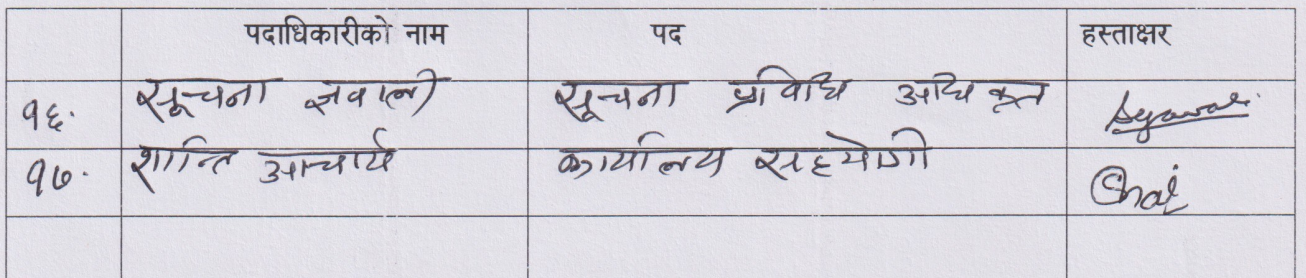 पदाधिकारीको नाम पद हस्ताक्षर
१६. सूचना ज्ञवाली सूचना प्रविधि अधिकृत
१७. शान्ति आचार्य कार्यालय सहयोगी